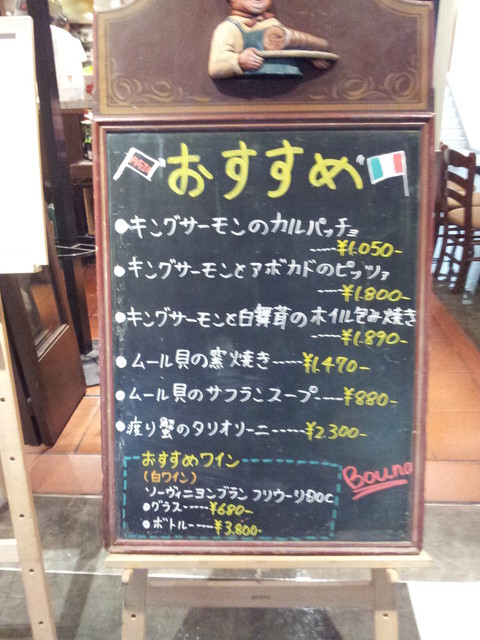 おすすめ
●キングサーモンのカルパッチョ
----¥1.050-
●キングサーモンとアボカドのピッツァ
----¥1.800-
●キングサーモンと白舞茸のホイル包み焼き
----¥1.890-
●ムール貝の窯焼き-----¥1.470-
●ムール貝のサフランスープ----¥880-
●渡り蟹のタリオリーニ-----¥2.300-
おすすめワイン
(白ワイン)
ソーヴィニヨンブラン フリウーリDOC
●グラス-----¥680-
●ボトル----¥3.800-
Bouno